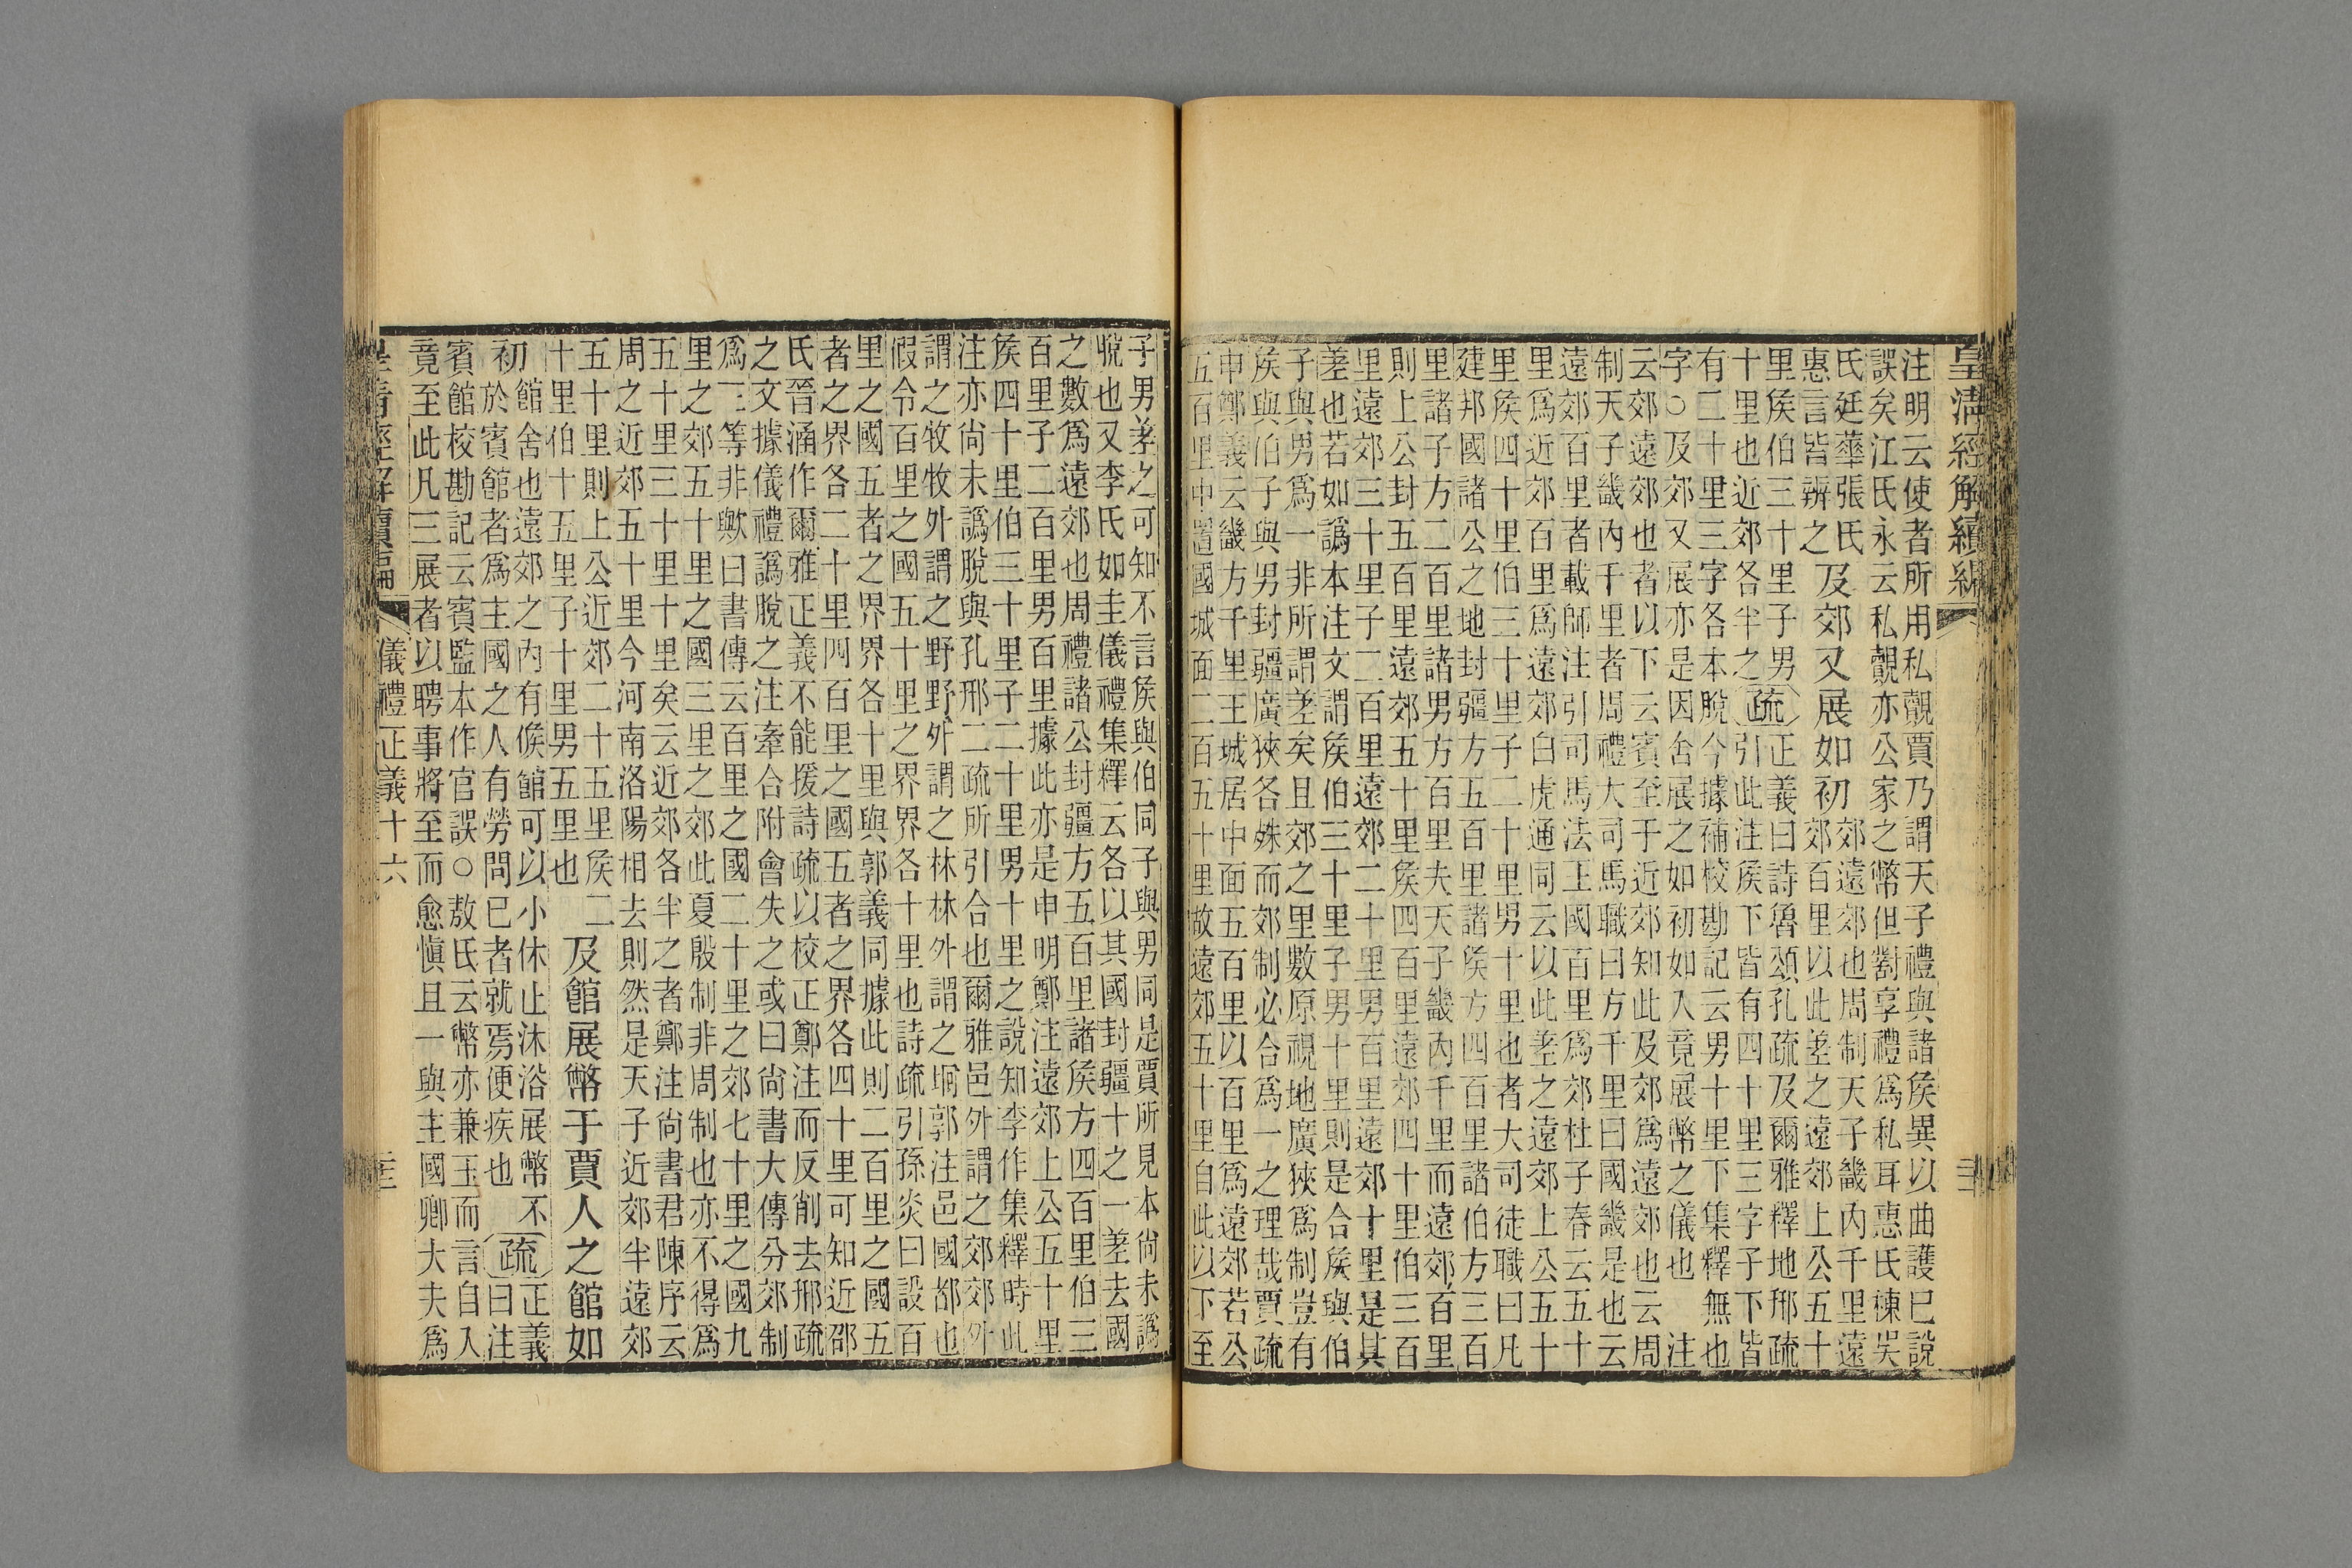 皇清經解續編
注明云使者所用私覿賈乃謂天子禮與諸侯異以曲護已說
誤矣江氏永云私覿亦公家之幣但對享禮爲私耳惠氏棟吳
氏廷華張氏
惠言皆辨之
及郊又展如初
郊遠郊也周制天子畿內千里遠
郊百里以此差之遠郊上公五十
里侯伯三十里子男
十里也近郊各半之
疏
正義曰詩魯頌孔疏及爾雅釋地邢疏
引此注侯下皆有四十里三字子下皆
有二十里三字各本脫今據補校勘記云男十里下集釋無也
字○及郊又展亦是因舍展之如初如入竟展幣之儀也 注
云郊遠郊也者以下云賓至于近郊知此及郊爲遠郊也云周
制天子畿內千里者周禮大司馬職曰方千里曰國畿是也云
遠郊百里者載師注引司馬法王國百里爲郊杜子春云五十
里爲近郊百里爲遠郊白虎通同云以此差之遠郊上公五十
里侯四十里伯三十里子二十里男十里也者大司徒職曰凡
建邦國諸公之地封疆方五百里諸侯方四百里諸伯方三百
里諸子方二百里諸男方百里夫天子畿內千里而遠郊百里
則上公封五百里遠郊五十里侯四百里遠郊四十里伯三百
里遠郊三十里子二百里遠郊二十里男百里遠郊十里是其
差也若如譌本注文謂侯伯三十里子男十里則是合侯與伯
子與男爲一非所謂差矣且郊之里數原視地廣狹爲制豈有
侯與伯子與男封疆廣狹各殊而郊制必合爲一之理哉賈疏
申鄭義云畿方千里王城居中面五百里以百里爲遠郊若公
五百里中置國城面二百五十里故遠郊五十里自此以下至
子男差之可知不言侯與伯同子與男同是賈所見本尚未譌
脫也又李氏如圭儀禮集釋云各以其國封疆十之一差去國
之數爲遠郊也周禮諸公封疆方五百里諸侯方四百里伯三
百里子二百里男百里據此亦是申明鄭注遠郊上公五十里
侯四十里伯三十里子二十里男十里之說知李作集釋時此
注亦尚未譌脫與孔邢二疏所引合也爾雅邑外謂之郊郊外
謂之牧牧外謂之野野外謂之林林外謂之坰郭注邑國都也
假令百里之國五十里之界界各十里也詩疏引孫炎曰設百
里之國五者之界界各十里與郭義同據此則二百里之國五
者之界各二十里四百里之國五者之界各四十里可知近邵
氏晉涵作爾雅正義不能援詩疏以校正鄭注而反削去邢疏
之文據儀禮譌脫之注牽合附會失之或曰尚書大傳分郊制
爲三等非歟曰書傳云百里之國二十里之郊七十里之國九
里之郊五十里之國三里之郊此夏殷制非周制也亦不得爲
五十里三十里十里矣云近郊各半之者鄭注尚書君陳序云
周之近郊五十里今河南洛陽相去則然是天子近郊半遠郊
五十里則上公近郊二十五里侯二
十里伯十五里子十里男五里也
及館展幣于賈人之館如
初
館舍也遠郊之內有候館可以小休止沐浴展幣不
於賓館者爲主國之人有勞問已者就焉便疾也
疏
正義
曰注
賓館校勘記云賓監本作官誤○敖氏云幣亦兼玉而言自入
竟至此凡三展者以聘事將至而愈慎且一與主國卿大夫爲
皇清經解續編
儀禮正義十六